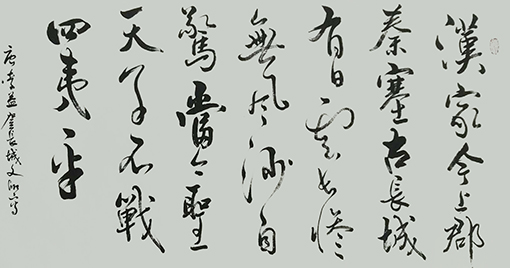 漢家今上郡
秦塞古長城
有日雲長慘
無風沙自
驚當今聖
天子不戰
四夷平
唐李益登長城